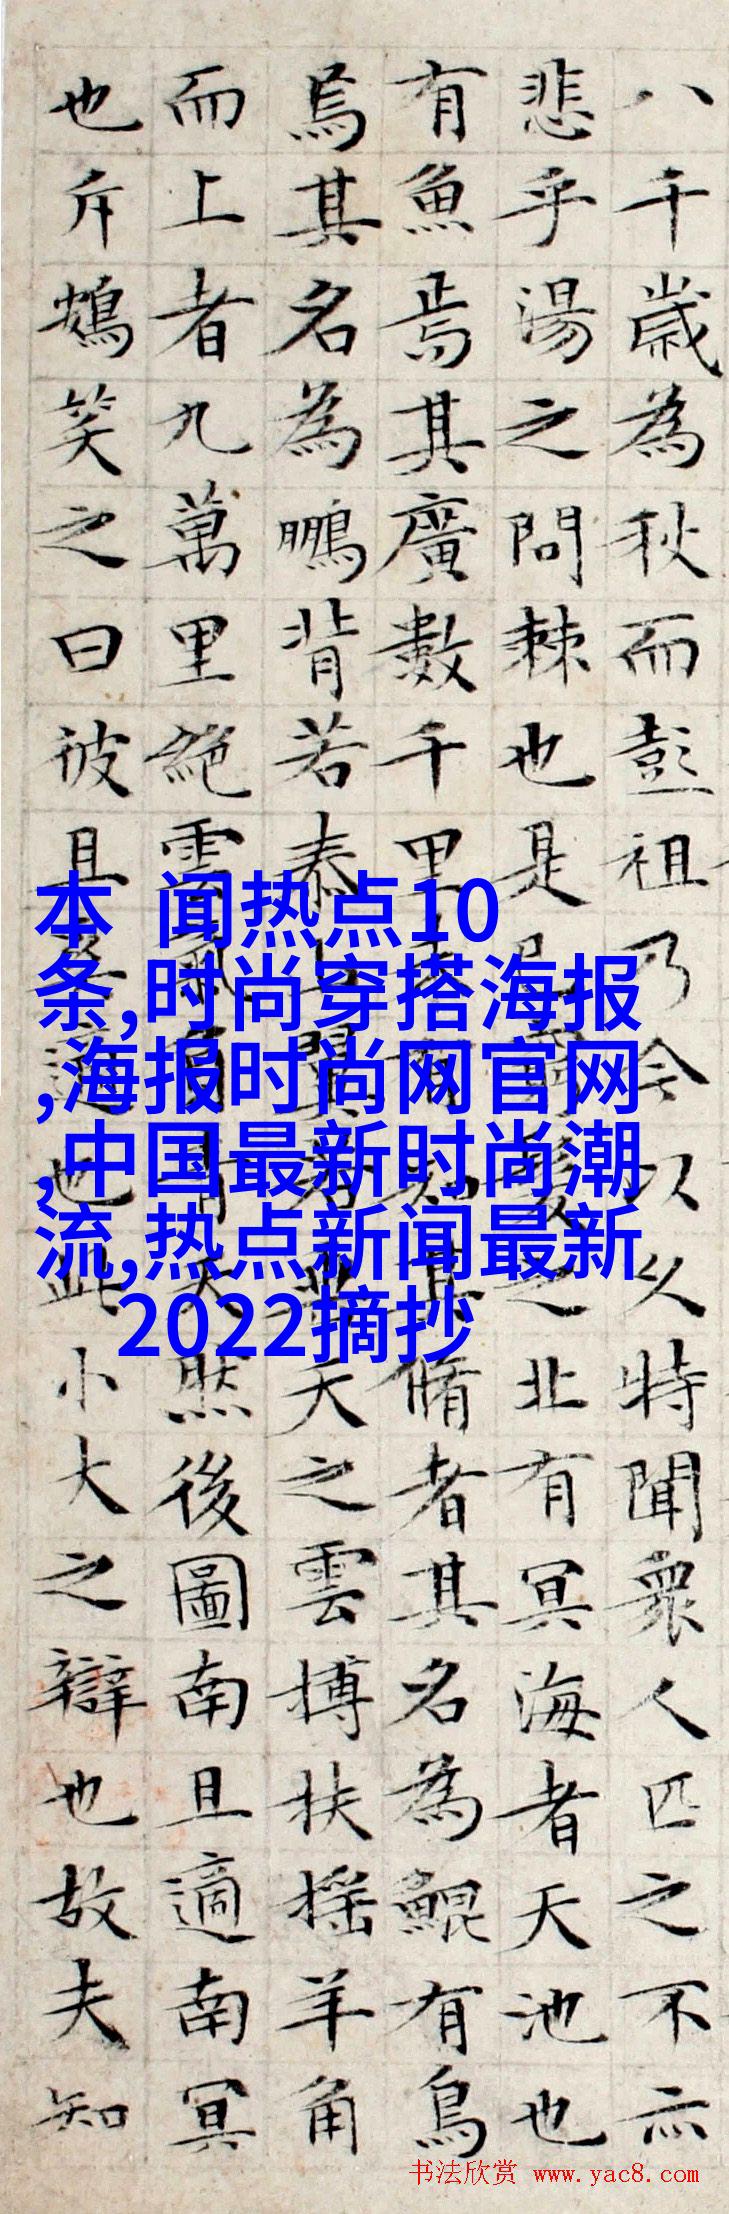 八千歲為秋而彭祖乃今以久特聞衆人匹之不亦
悲乎湯之問棘也是已窮髮之北有冥海者天池也
有魚焉其廣數千里未有知其脩者其名為鯤有鳥
焉其名為鵬背若泰山翼若垂天之雲搏扶搖羊角
而上者九萬里絕雲氣負青天然後圖南且適南冥
也斥鴳笑之曰彼且奚適也此小大之辯也故夫知
本 闻热点10
条,时尚穿搭海报
,海报时尚网官网
,中国最新时尚潮
流,热点新闻最新
2022摘抄
书法欣赏 www.yac8.com